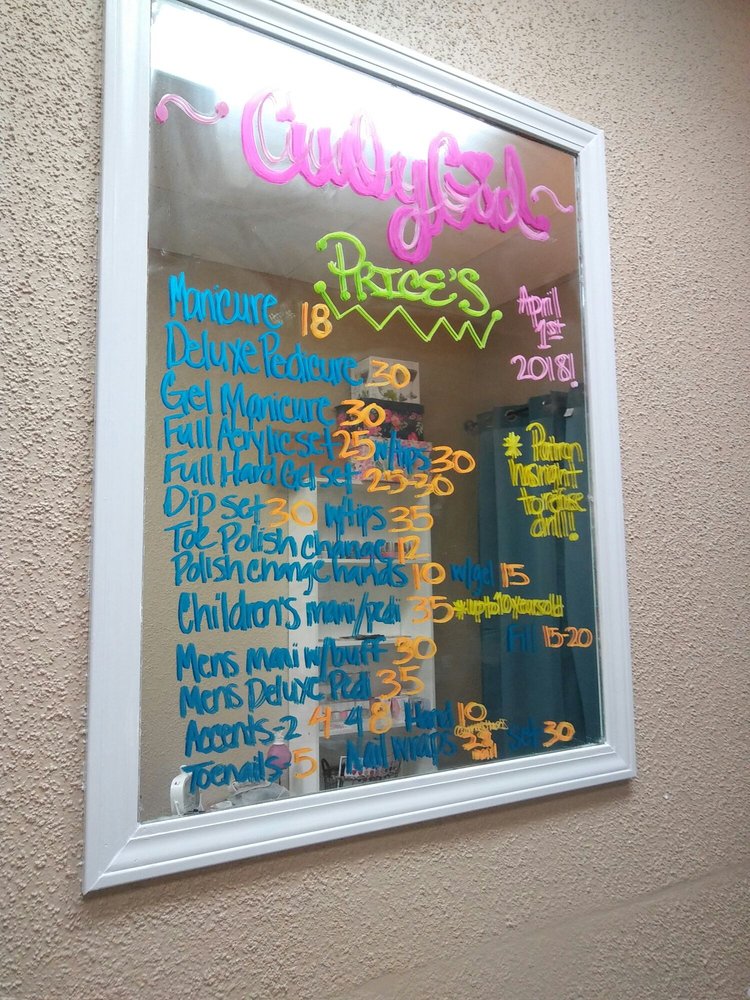 ~ CurlyGirl ~
PRICE'S
April
1st
2018!
Manicure 18
Deluxe Pedicure 30
Gel Manicure 30
Full Acrylic set 25 w/tips 30
Full Hard Gel set 25-30
Dip set 30 w/tips 35
Toe Polish change 12
Polish change hands 10 w/gel 15
Children's mani/pedi 35 *up to 10 years old
Fill 15-20
Mens mani w/buff 30
Mens Deluxe Pedi 35
Accents-2 4 4 8 Hand 10
Toenails 5 Nail wraps set 30
* Patron
has right
to refuse
drill!